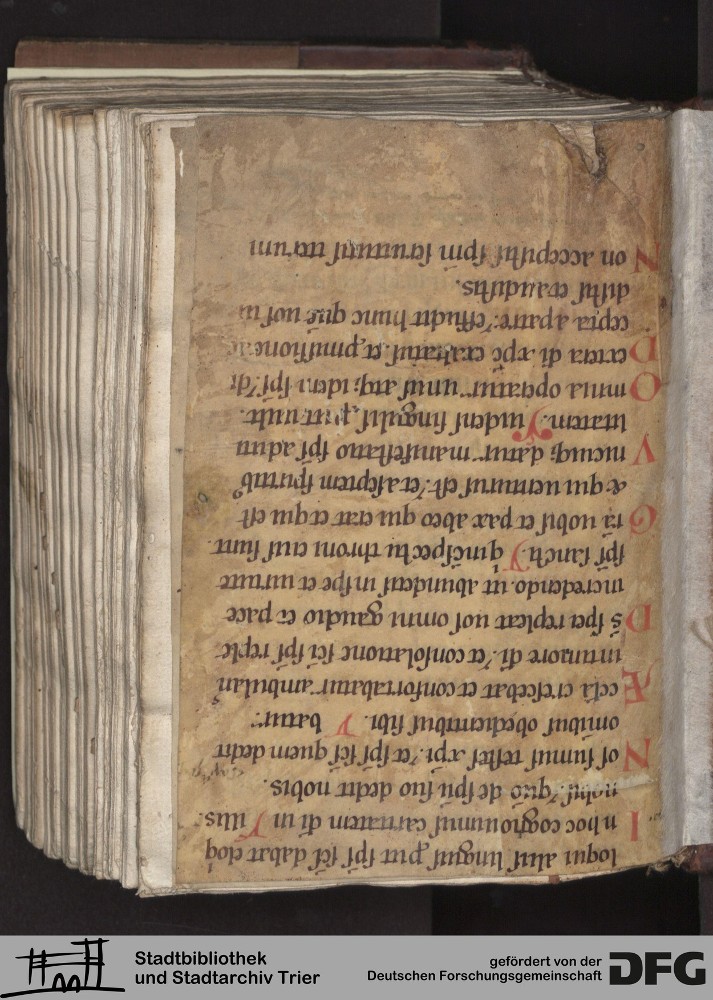 loqui aliis linguis, ꝓut sp̄s sc̄s dabat eloq
In hoc cognouimus caritatem di in V illis.
nobis; quō de spū suo dedit nobis.
Nos sumus testes xp̄i; & sp̄s sc̄s quem dedit
omībus obedientibus sibi. V batur;
Æccła crescebat et confortabatur ambulans
in timore di; & consolatione sc̄i sp̄s reple
Ds̄ spei repleat uos omni gaudio et pace
in credendo. ut abundetis in spe et uirtute
sp̄s sancti. V q in c̄spectu throni eius sunt.
Gr̄a uobis et pax ab eo qui erat et qui est
æ qui uenturus est; et a septem spiritib;
Vnicuiq; datur manifestatio sp̄s ad uti
litatem. V uidens singulis ꝓut uult.
Omnia operatur unus atq; idem sp̄s; di
Dextera di xp̄c exaltatus. et ꝓmissione ac
cepta a patre; effudit hunc quę uos ui
distis et audistis.
Non accepistis sp̄m seruitutis iterum
Stadtbibliothek
und Stadtarchiv Trier
gefördert von der
Deutschen Forschungsgemeinschaft
DFG